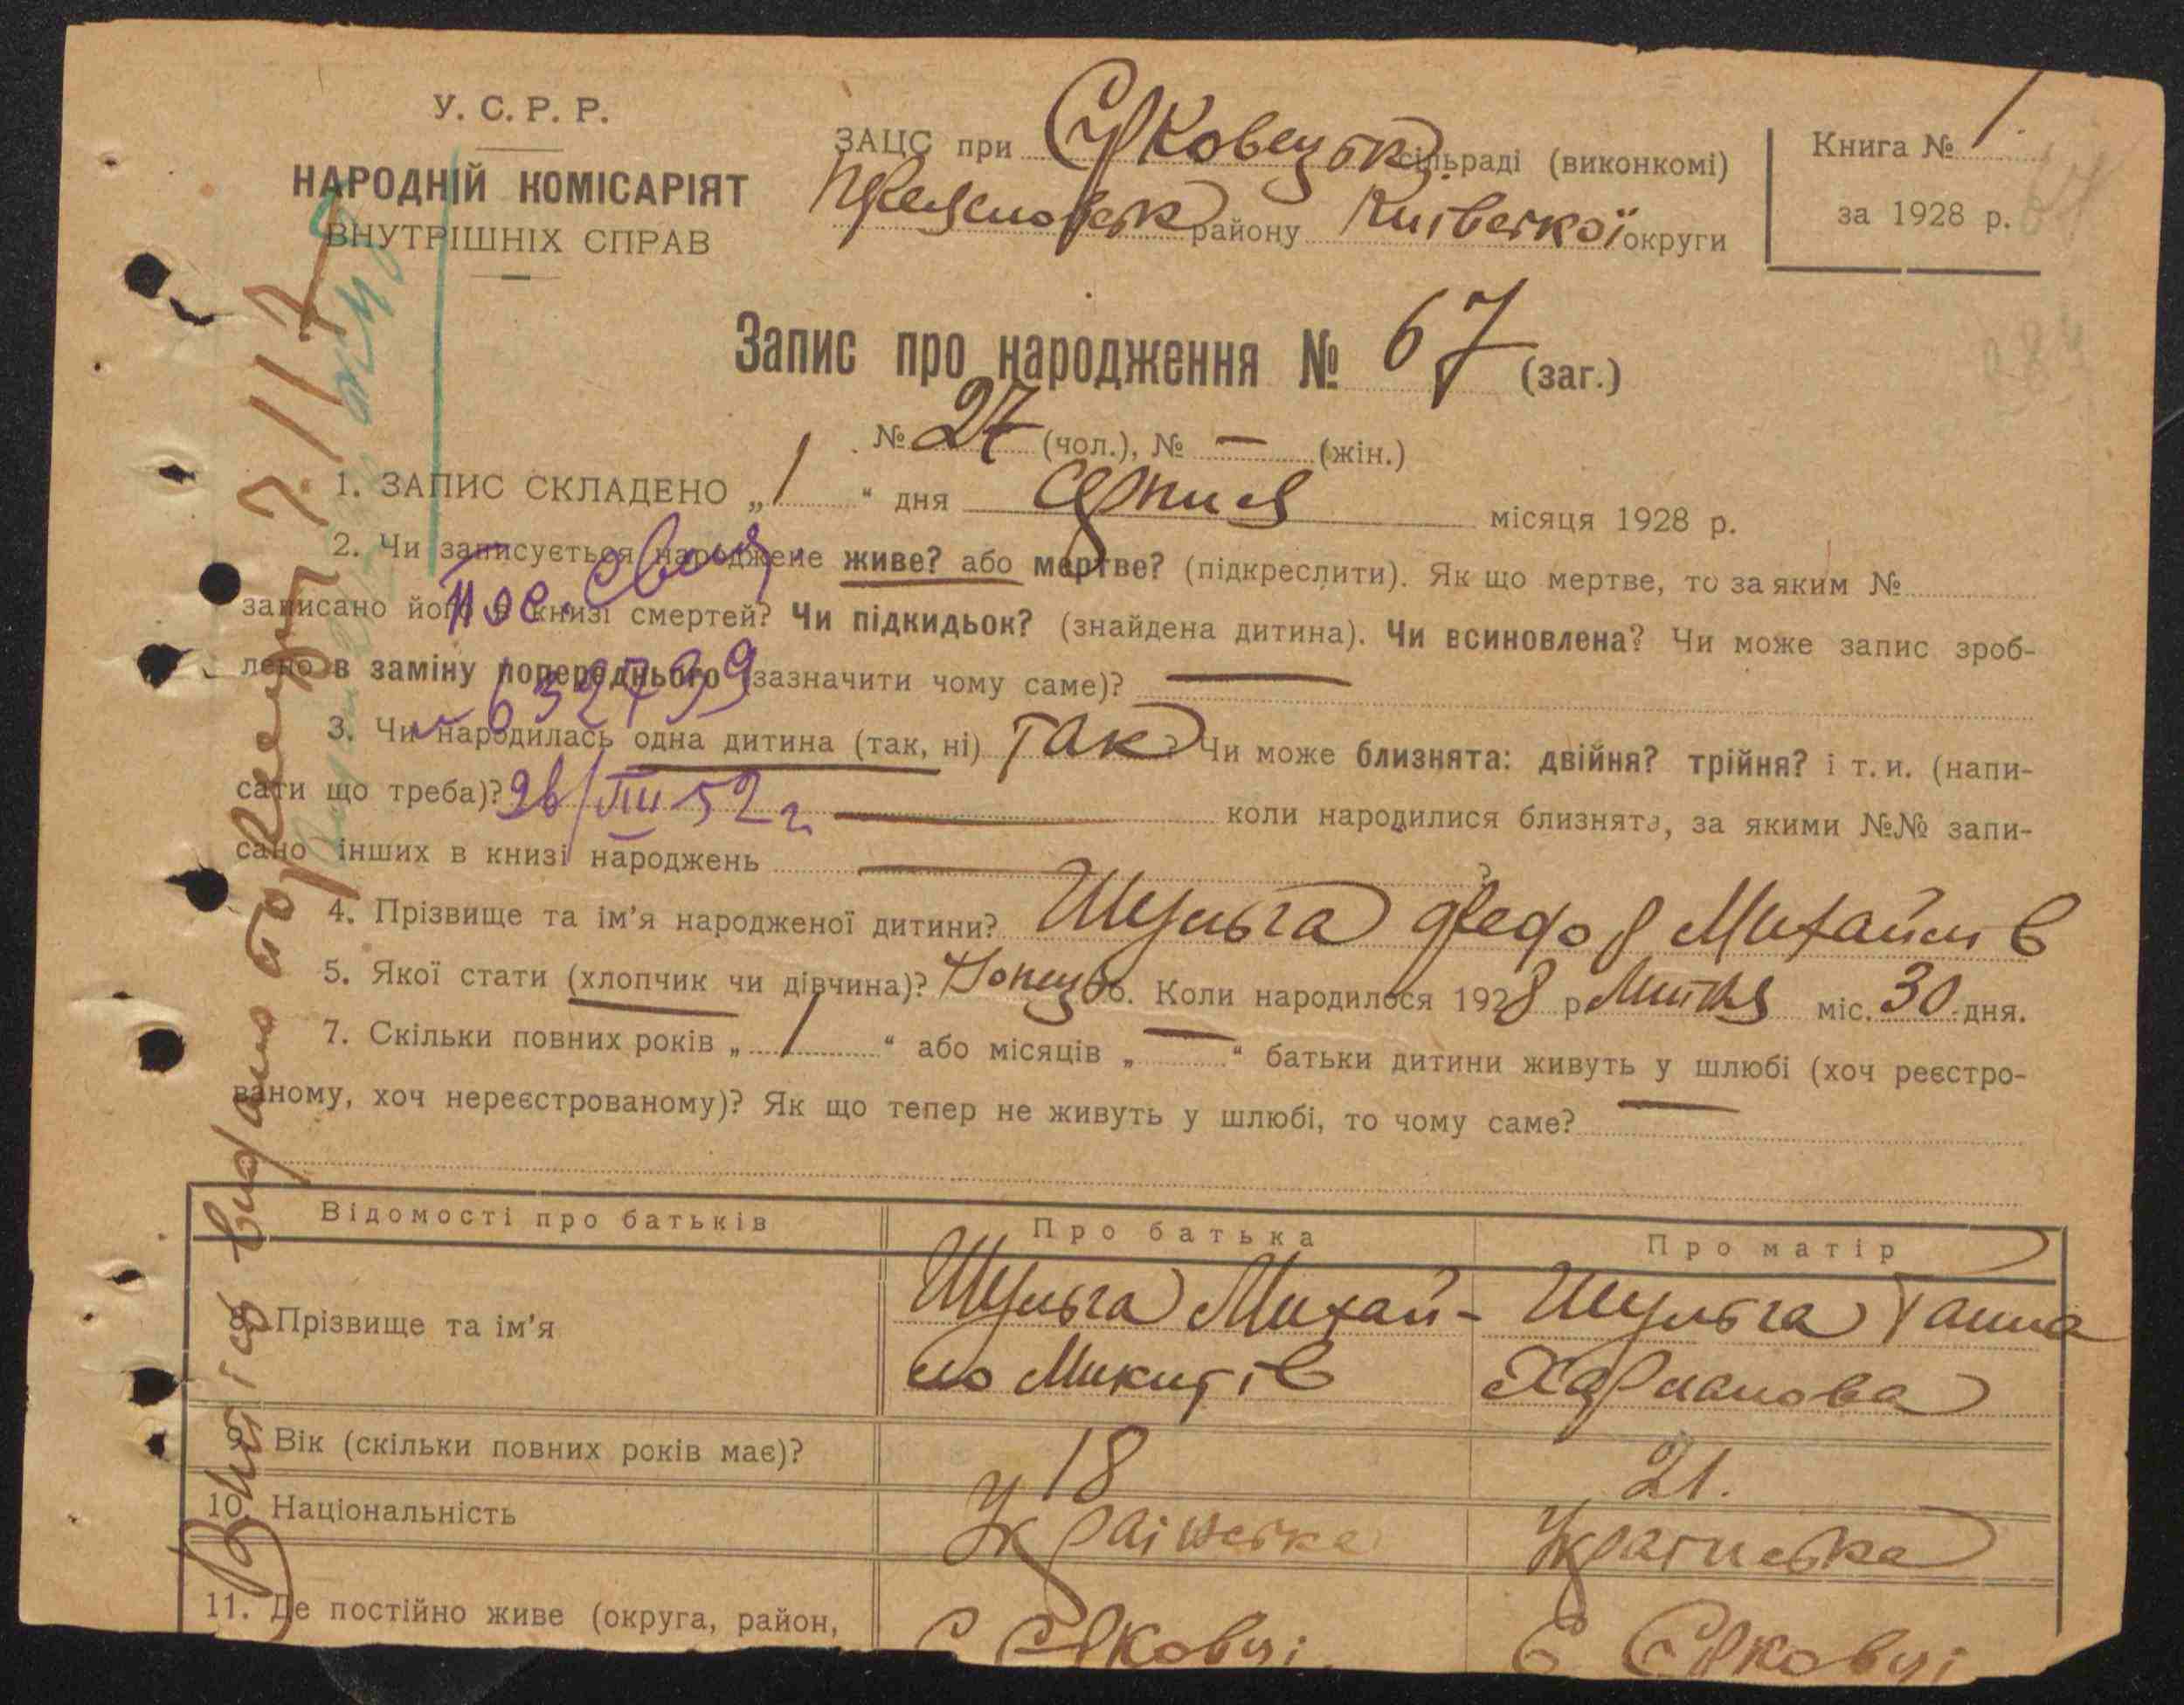 У. С. Р. Р.
НАРОДНІЙ КОМІСАРІЯТ
ВНУТРІШНІХ СПРАВ
ЗАЦС при сільраді (виконкомі)
району Київської округи
Книга № 1
за 1928 р.
67
Запис про народження № 67 (заг.)
№ 27 (чол.), № — (жін.)
1. ЗАПИС СКЛАДЕНО „ 1 “ дня серпня місяця 1928 р.
2. Чи записується народжене живе? або мертве? (підкреслити). Як що мертве, то за яким №
записано його в книзі смертей? Чи підкидьок? (знайдена дитина). Чи всиновлена? Чи може запис зроб-
лено в заміну попереднього (зазначити чому саме)? —
3. Чи народилась одна дитина (так, ні) так ? Чи може близнята: двійня? трійня? і т. и. (напи-
сати що треба)? — коли народилися близнята, за якими №№ запи-
сано інших в книзі народжень — ?
4. Прізвище та ім’я народженої дитини? Шульга Федор Михайлів
5. Якої стати (хлопчик чи дівчина)? Хлопець 6. Коли народилося 1928 р. Липня міс. 30 дня.
7. Скільки повних років „ 1 “ або місяців „ — “ батьки дитини живуть у шлюбі (хоч реєстро-
ваному, хоч нереєстрованому)? Як що тепер не живуть у шлюбі, то чому саме? —
Відомості про батьків Про батька Про матір
8. Прізвище та ім’я Шульга Михай- Шульга Ганна
ло Микитів Харланова
9. Вік (скільки повних років має)? 18 21.
10. Національність Українська Українська
11. Де постійно живе (округа, район, с Сірковці с Сірковці
Пос. свид.
№ 632799
26/VIII 52 г
Витяг видано